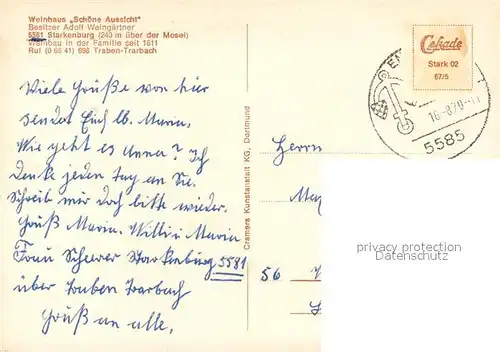 Weinhaus „Schöne Aussicht"
Besitzer Adolf Weingärtner
5581 Starkenburg (240 m über der Mosel)
Weinbau in der Familie seit 1611
Ruf (0 65 41) 698 Traben-Trarbach
Viele Grüße von hier
sendet Euch lb. Maria.
Wie geht es Anna? Ich
Denke jeden Tag an Sie.
Schreib mir doch bitte wieder.
Gruß Maria. Willi u Maria
Frau Scheerer Starkenburg 5581
über Traben Trarbach
Gruß an alle,
Cramers Kunstanstalt KG, Dortmund
Cekade
Stark 02
67/5
16-8.70-17
5585
Herrn
56
privacy protection
Datenschutz